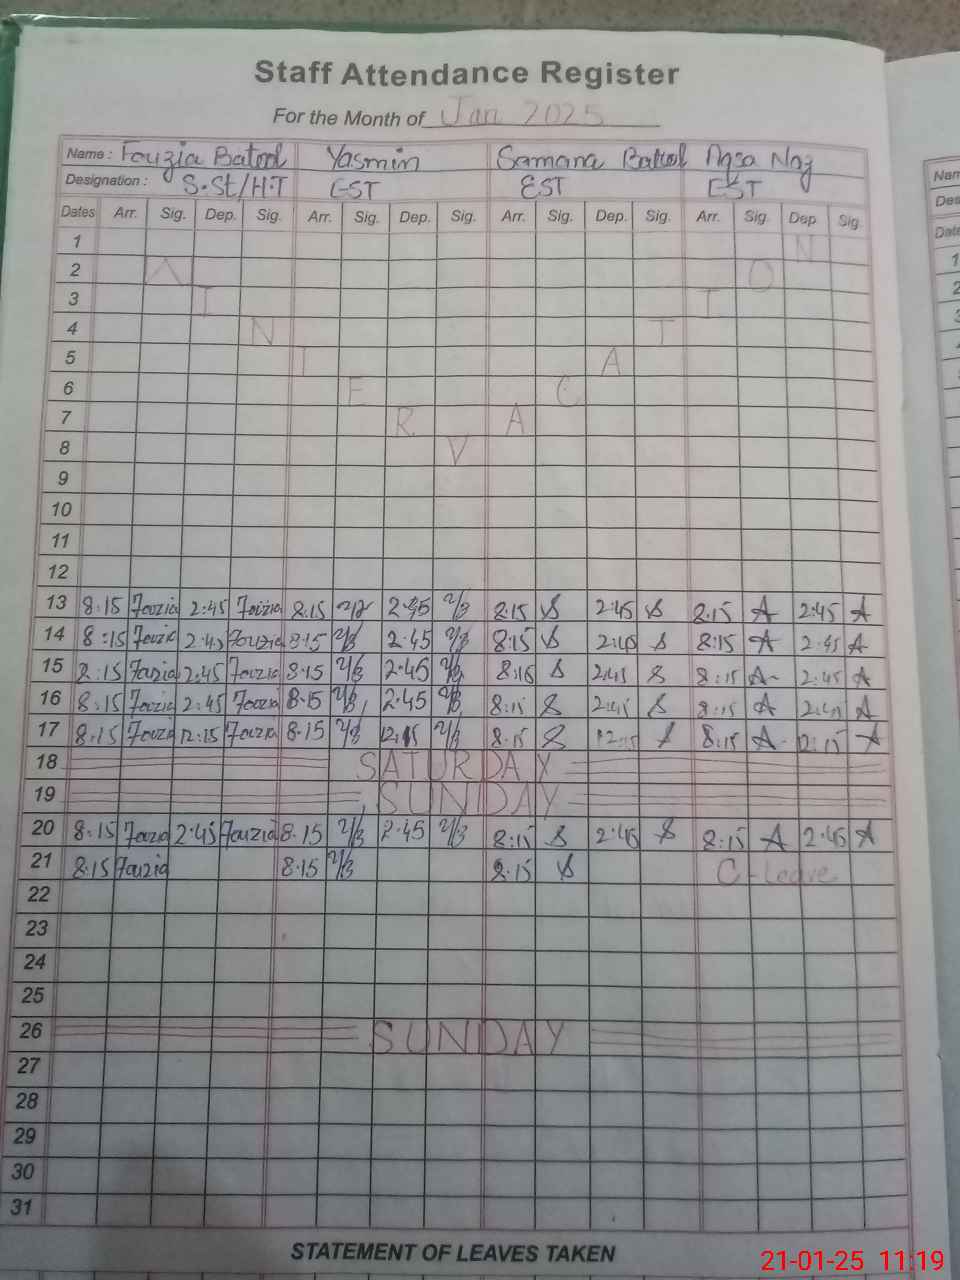 Staff Attendance Register
For the Month of Jan 2025
Name : Fouzia Batool Yasmin Samana Batool Aqsa Naz
Designation : S.St/H.T EST EST EST
Dates Arr. Sig. Dep. Sig. Arr. Sig. Dep. Sig. Arr. Sig. Dep. Sig. Arr. Sig. Dep. Sig.
1 N
2 O
3 I I
4 N T
5 T A
6 E C
7 R A
8 V
9
10
11
12
13 8:15 Fouzia 2:45 Fouzia 8:15 2:45 8:15 S 2:45 S 8:15 A 2:45 A
14 8:15 Fouzia 2:45 Fouzia 8:15 2:45 8:15 S 2:45 S 8:15 A 2:45 A
15 8:15 Fouzia 2:45 Fouzia 8:15 2:45 8:15 S 2:45 S 8:15 A 2:45 A
16 8:15 Fouzia 2:45 Fouzia 8:15 2:45 8:15 S 2:45 S 8:15 A 2:45 A
17 8:15 Fouzia 12:15 Fouzia 8:15 12:15 8:15 S 12:15 S 8:15 A 12:15 A
18 SATURDAY
19 SUNDAY
20 8:15 Fouzia 2:45 Fouzia 8:15 2:45 8:15 S 2:45 S 8:15 A 2:45 A
21 8:15 Fouzia 8:15 8:15 S C-Leave
22
23
24
25
26 SUNDAY
27
28
29
30
31
STATEMENT OF LEAVES TAKEN
21-01-25 11:19
Nam
Des
Date
1
2
3